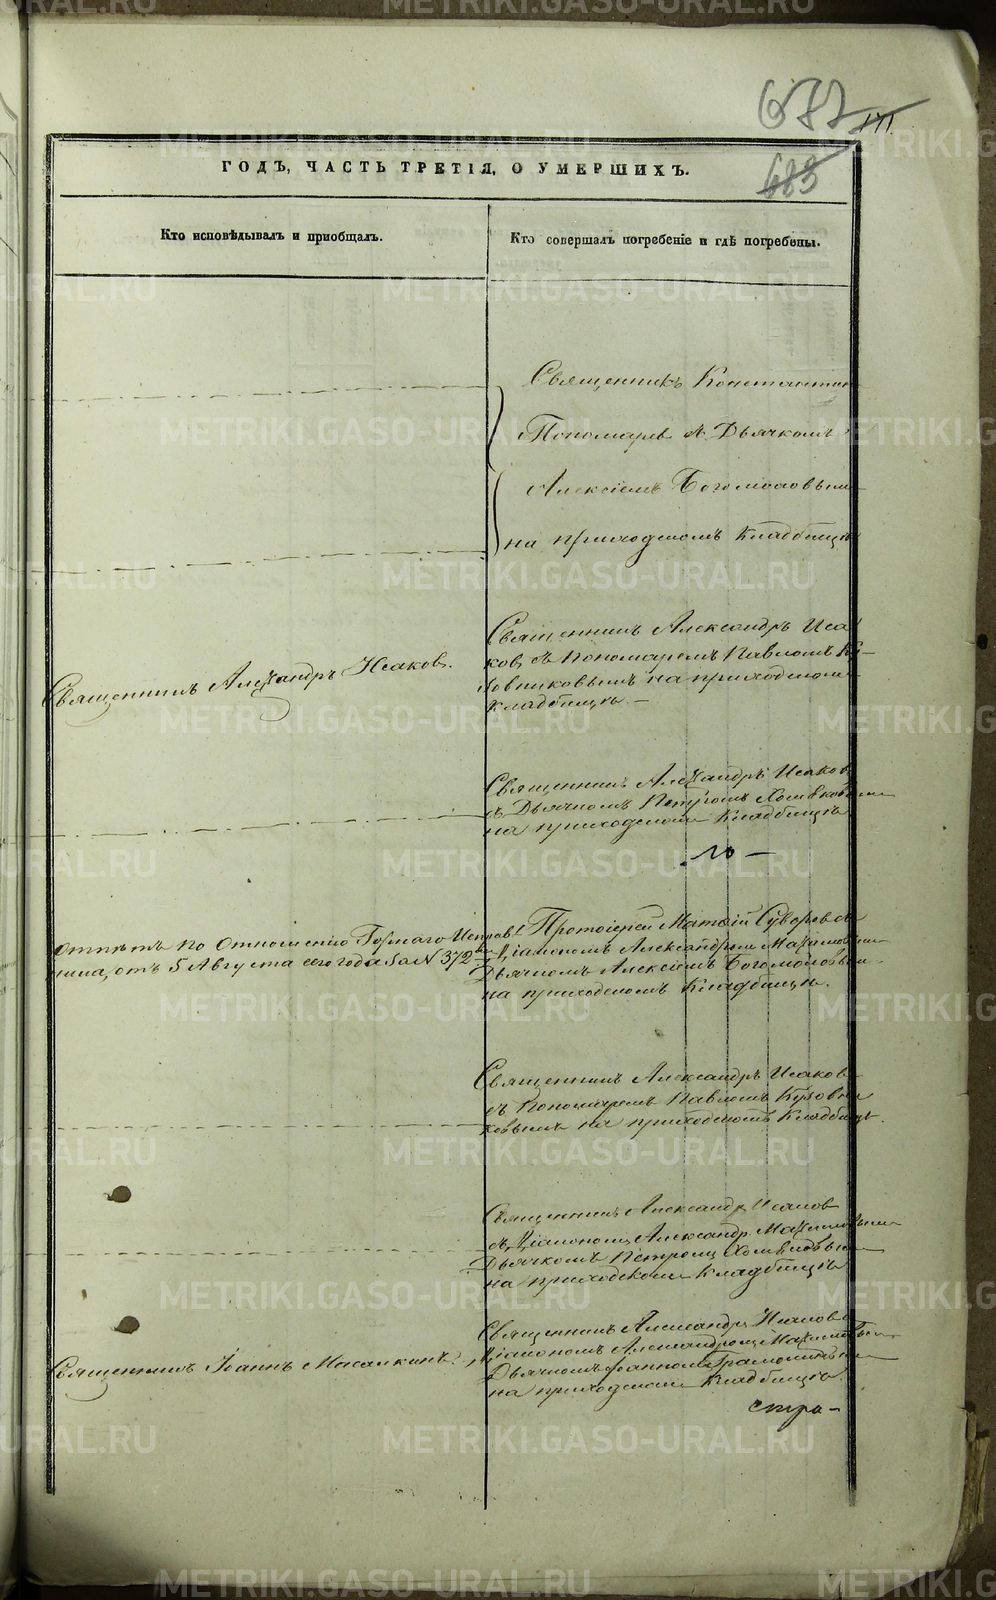 677
III
483
ГОДЪ, ЧАСТЬ ТРЕТІЯ, О УМЕРШИХЪ.
Кто исповѣдывалъ и приобщалъ.
Кто совершалъ погребеніе и гдѣ погребены.
Священникъ Константинъ
Пономарев съ Дьячкомъ
Алексіемъ Богомоловымъ
на приходскомъ кладбищѣ
Священникъ Александръ Исаковъ.
Священникъ Александръ Иса
ков съ Пономаремъ Павломъ Ку
зовниковымъ на приходскомъ
кладбищѣ. —
Священникъ Александръ Исаков
съ Дьячкомъ Петромъ Хомяковымъ
на приходскомъ Кладбищѣ
ло —
Отпѣтъ по Отношенію Горнаго Исправ
ника, отъ 5 Августа сего года за N 372
Протоіерей Матѳій Суворов съ
Діакономъ Александромъ Махановымъ
Дьячкомъ Алексіемъ Богомоловымъ
на приходскомъ Кладбищѣ.
Священникъ Александръ Исаков
съ Пономаремъ Павломъ Кузовни
ковымъ на приходскомъ Кладбищѣ.
Священникъ Александръ Исаков
съ Діакономъ Александр
Дьячкомъ Петромъ Хомяковымъ
на приходскомъ Кладбищѣ
Священникъ Іоаннъ Масалкинъ.
Священникъ Александръ Исаков съ
Діакономъ Александромъ
Дьячкомъ Іоанномъ
на приходскомъ Кладбищѣ
стра —
METRIKI.GASO-URAL.RU